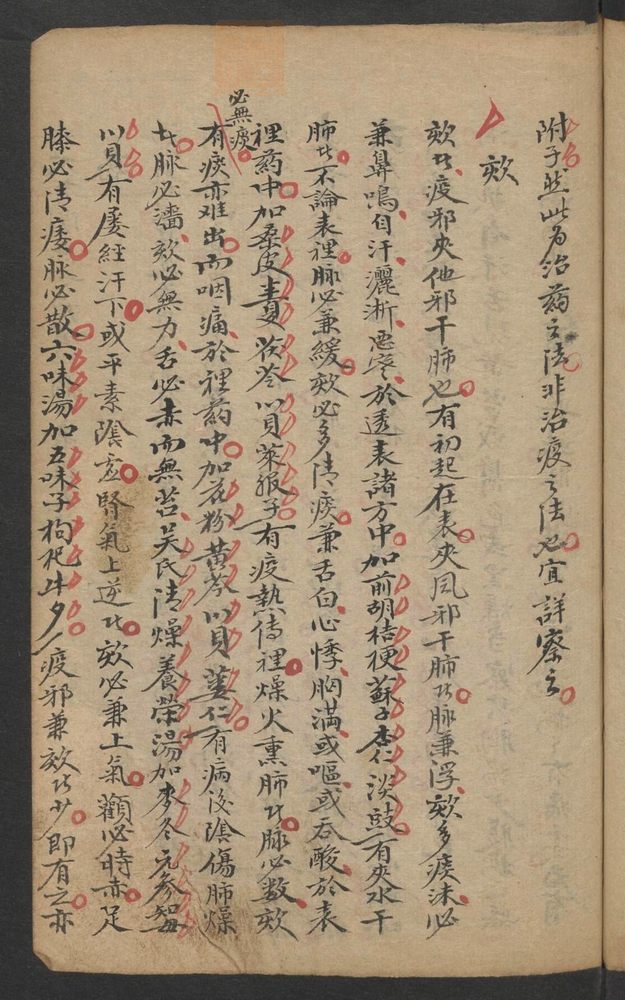 附子然此为治药之法非治疫之法也宜詳察之
欬
欬者疫邪夾他邪干肺也有初起在表夾风邪干肺者脉兼浮欬多痰沫必
兼鼻鳴自汗灑淅恶寒於透表諸方中加前胡桔梗蘇子杏仁淡豉有夾水干
肺者不論表裡脉必兼緩欬必多清痰兼舌白心悸胸滿或嘔或吞酸於表
裡药中加桑皮半夏茯苓川貝萊服子有疫熱傳裡燥火熏肺者脉必数欬
必無痰
有痰亦难出而咽痛於裡药中加花粉黄芩川貝蒌仁有病後陰傷肺燥
者脉必濇欬必無力舌必赤而無苔吴氏清燥養榮湯加麥冬元参知母
川貝有屡經汗下或平素陰虛腎氣上逆者欬必兼上氣顴必時赤足
膝必清痿脉必散六味湯加五味子枸杞牛夕疫邪兼欬者少即有之亦